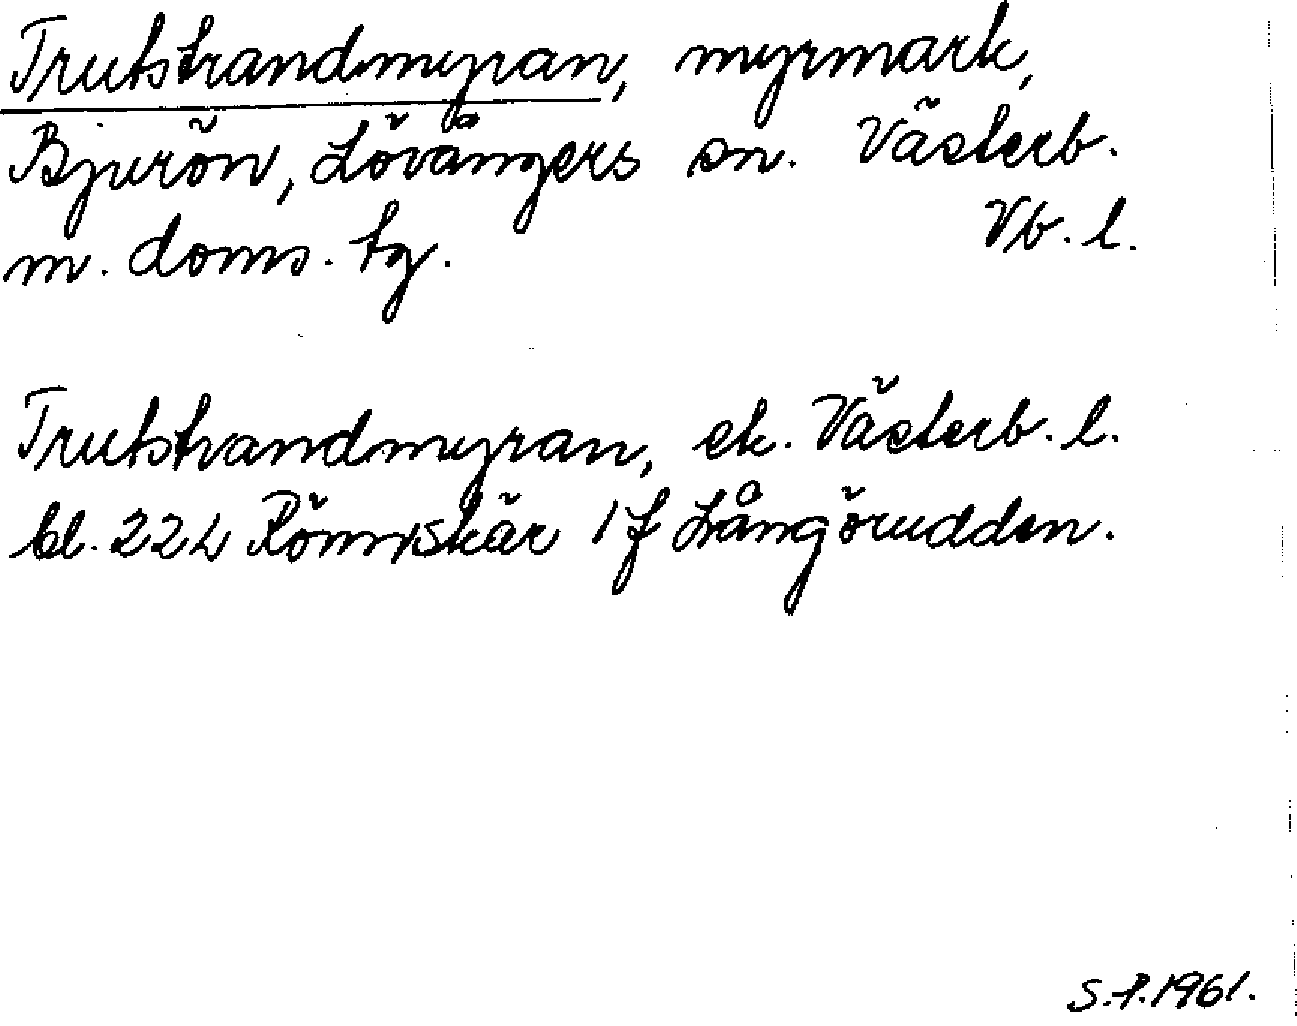 Trutstrandmyran, myrmark,
Bjurön, Lövångers sn. Västerb.
m. doms. tg. Vb. l.
Trutstrandmyran, ek. Västerb. l.
bl. 22L Römskär 1f Långörudden.
S.P.1961.